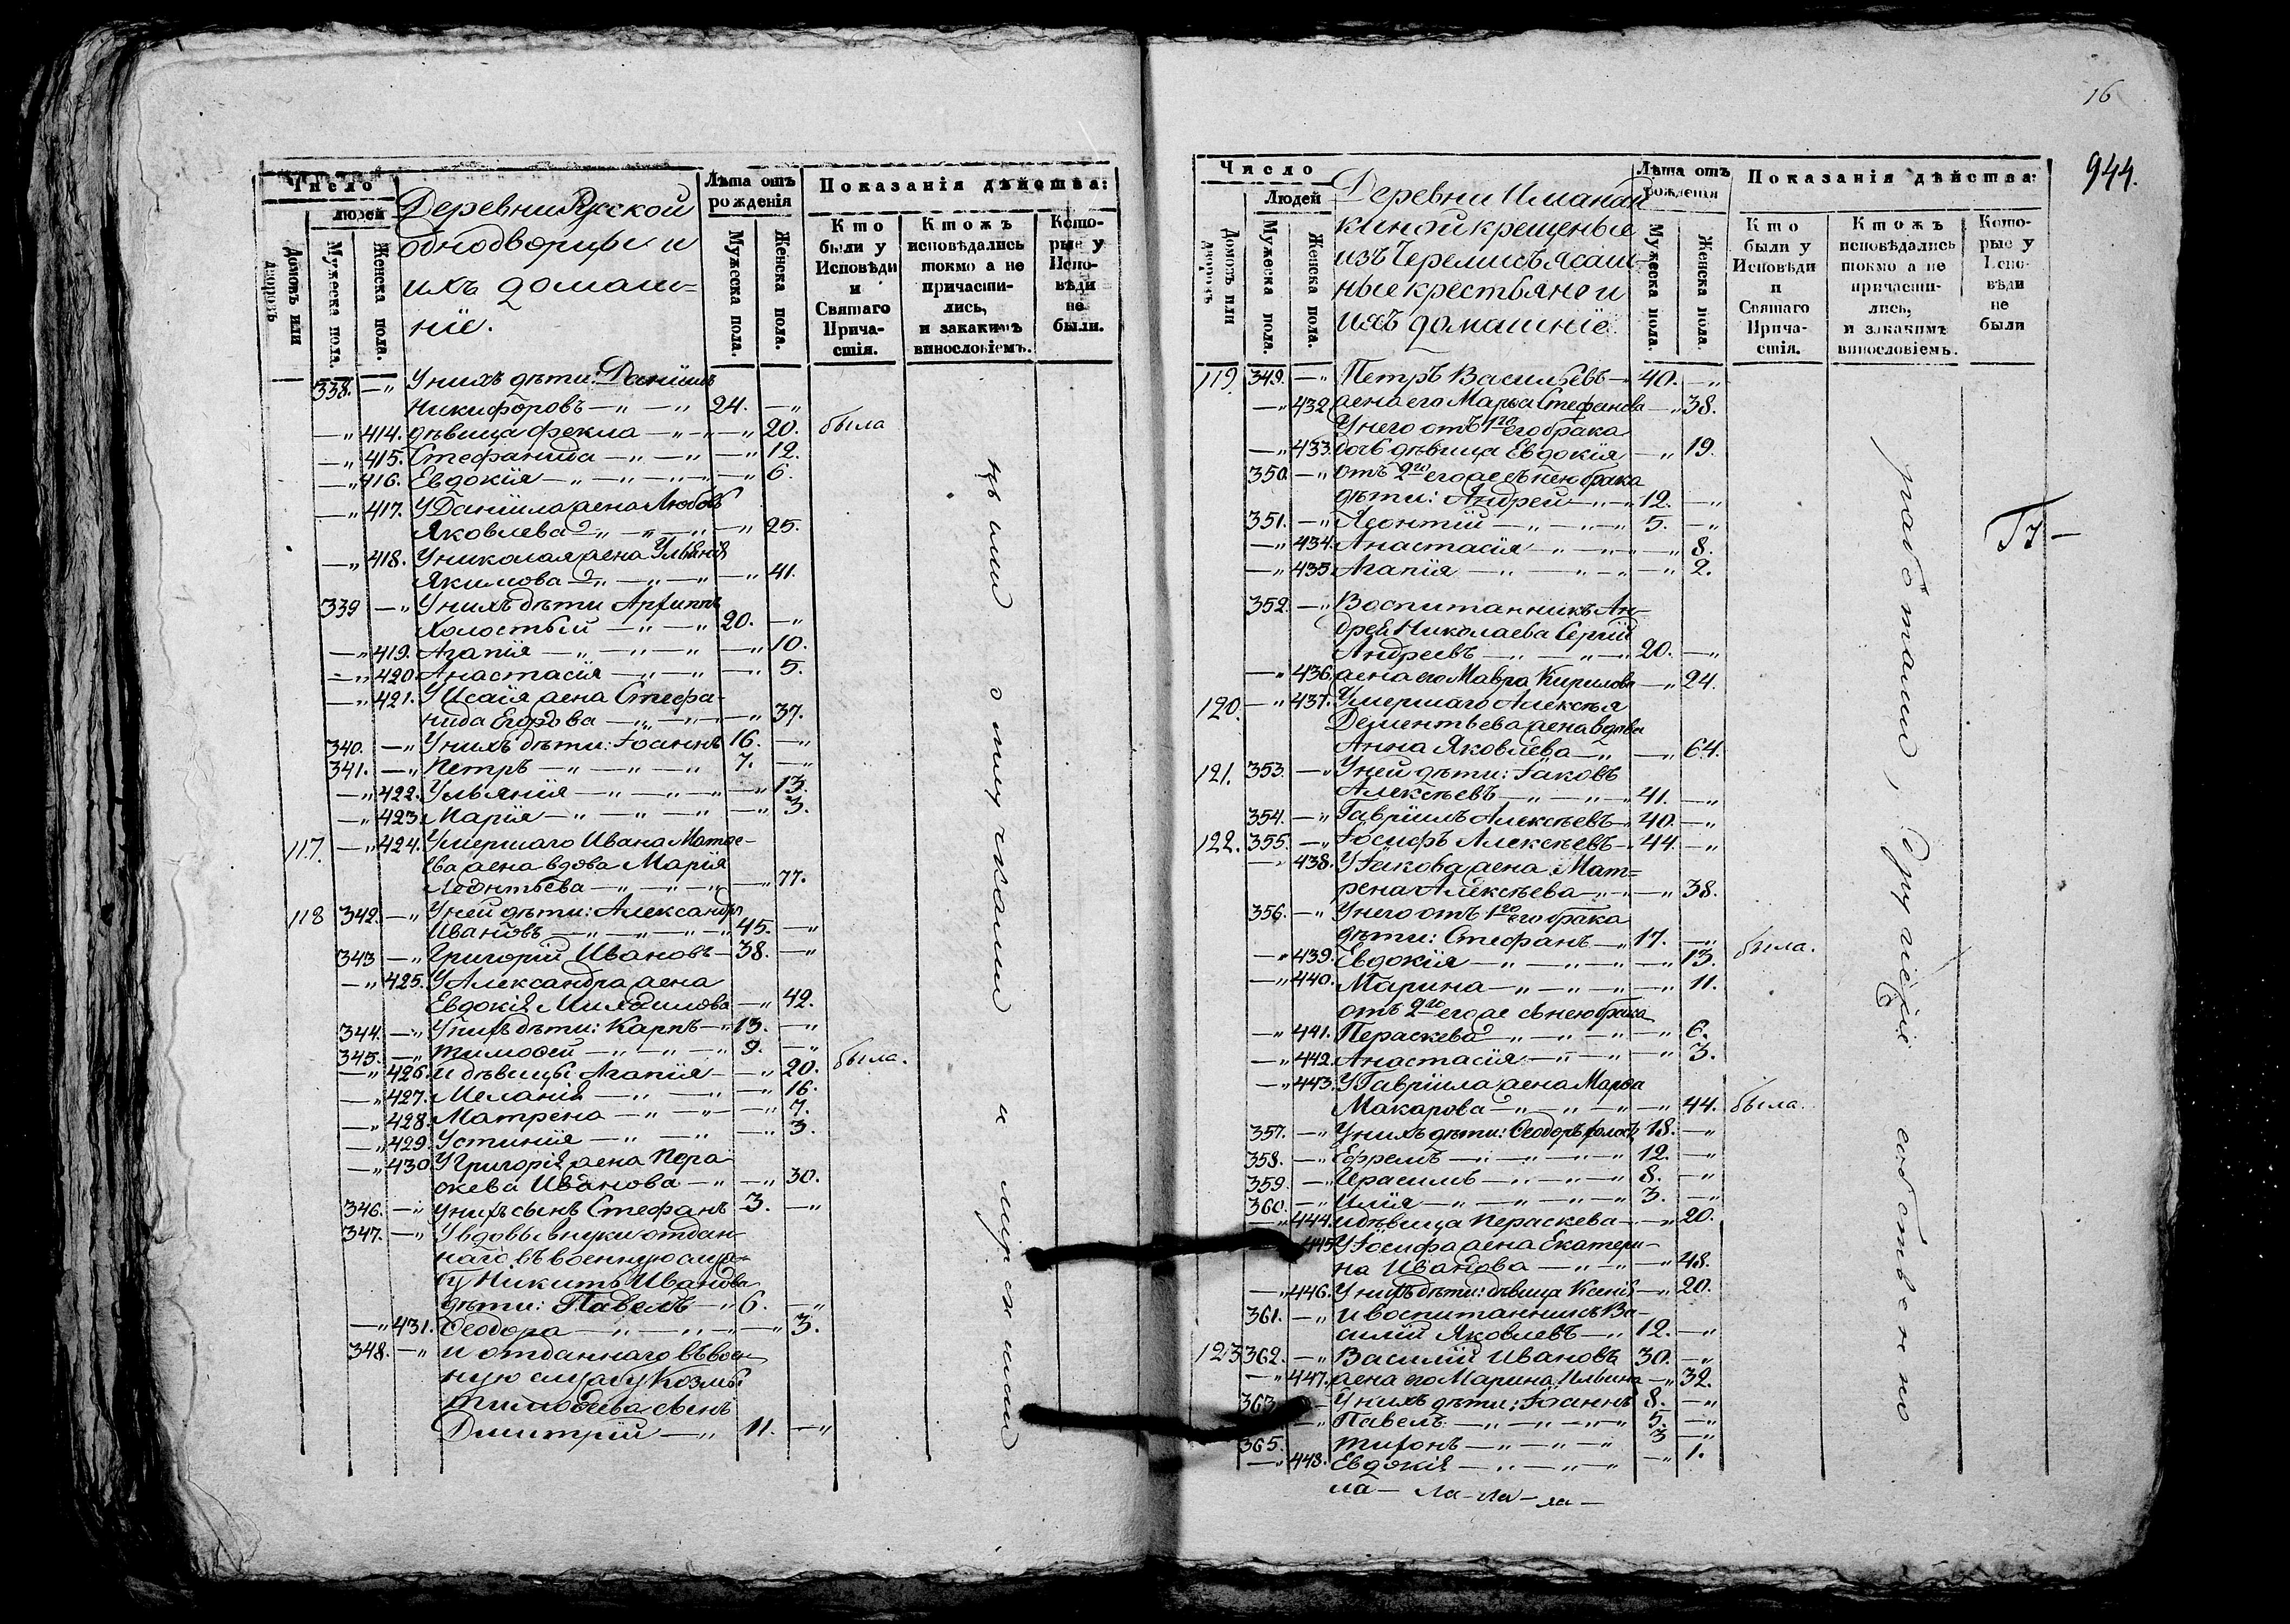 Число
людей
Домовъ или дворовъ
Мужеска пола.
Женска пола.
Деревни Русской
однодворцы и
ихъ домаш=
ніе.
Лѣта отъ рожденія
Мужеска пола.
Женска пола.
Показанія дѣйства:
Кто были у Исповѣди и Святаго Прича-стія.
Ктожъ исповѣдались токмо а не причасти-лись, и закакимъ винословіемъ.
Кото-рые у Испо-вѣди не были.
338. —„ У нихъ дѣти: Даніилъ
Никифоровъ —„ —„ 24. —„
—„ 414. дѣвица Фекла —„ —„ 20. была
—„ 415. Стефанида —„ —„ —„ 12.
—„ 416. Евдокія —„ —„ —„ 6.
—„ 417. У Даніила жена Любовь
Яковлева —„ —„ —„ 25.
—„ 418. У Николая жена Ульянія
Якимова —„ —„ —„ 41.
339 —„ У нихъ дѣти Архиппъ
Холостый —„ —„ 20. —„
—„ 419. Агапія —„ —„ —„ 10.
—„ 420 Анастасія —„ —„ —„ 5.
—„ 421. У Исаія жена Стефа-
нида Егорова —„ —„ —„ 37.
340. —„ У нихъ дѣти: Іоаннъ 16. —„
341. —„ Петръ —„ —„ —„ 7. —„
—„ 422. Ульянія —„ —„ —„ 13.
—„ 423. Марія —„ —„ —„ 3.
117. —„ 424. Умершаго Ивана Матве-
ева жена вдова Марія
Леонтьева —„ —„ —„ 77.
118 342. —„ У ней дѣти: Александръ
Ивановъ —„ —„ —„ 45. —„
343 —„ Григорій Ивановъ — 38. —„
—„ 425. У Александра жена
Евдокія —„ 42.
344. —„ У нихъ дѣти: Карпъ —„ 13. —„
345. —„ Тимоѳей —„ —„ —„ 9. —„
—„ 426. и дѣвицы Агапія —„ 20. была.
—„ 427. Меланія —„ —„ —„ 16.
—„ 428. Матрена —„ —„ —„ 7.
—„ 429. Устинія —„ —„ —„ 3.
—„ 430 У Григорія жена Пера
скева Иванова —„ —„ 30.
346. —„ У нихъ сынъ Стефанъ 3. —„
347. —„ У вдовы внуки отдан-
наго въ военную служ-
бу Никиты Иванова
дѣти: Павелъ —„ 6. —„
—„ 431. Ѳеодора —„ —„ —„ 3.
348. —„ и отданнаго въ воен-
ную службу Козмы
Тимоѳеева сынъ
Димитрій —„ 11. —„
16
944.
Число
Людей
Домовъ или дворовъ
Мужеска пола.
Женска пола.
Деревни Иманай
киной крещеные
изъ Черемисъ ясаш-
ные крестьяне и
ихъ домашніе.
Лѣта отъ рожденія
Мужеска пола.
Женска пола.
Показанія дѣйства:
Кто были у Исповѣди и Святаго Прича-стія.
Ктожъ исповѣдались токмо а не причасти-лись, и закакимъ винословіемъ.
Кото-рые у Испо-вѣди не были
119. 349. —„ Петръ Васильевъ —„ 40. —„
—„ 432 жена его Марѳа Стефанова —„ 38.
У него отъ 1го его брака
—„ 433. дочь дѣвица Евдокія —„ 19.
350. —„ отъ 2го его же съ нею брака
дѣти: Андрей —„ —„ 12. —„
351. —„ Леонтій —„ —„ —„ 5. —„
—„ 434. Анастасія —„ —„ —„ 8.
—„ 435. Агапія —„ —„ —„ 2.
352. —„ Воспитанникъ Ан-
дрея Николаева Сергій
Андреевъ —„ —„ 20. —„
—„ 436. жена его Мавра Кирилова —„ 24.
120. —„ 437. Умершаго Алексѣя
Дементьева жена вдова
Анна Яковлева —„ —„ 64.
121. 353. —„ У ней дѣти: Іаковъ
Алексѣевъ —„ —„ 41. —„
354. —„ Гавріилъ Алексѣевъ —„ 40. —„
122. 355. —„ Іосифъ Алексѣевъ —„ 44. —„
—„ 438. У Іакова жена Мат=
рена Алексѣева —„ —„ 38.
356. —„ У него отъ 1го его брака
дѣти: Стефанъ —„ 17. —„
—„ 439. Евдокія —„ —„ —„ 13. была.
—„ 440. Марина —„ —„ —„ 11.
отъ 2го его же съ нею брака
—„ 441. Пераскева —„ —„ —„ 6.
—„ 442. Анастасія —„ —„ —„ 3.
—„ 443. У Гавріила жена Марѳа
Макарова —„ —„ —„ 44. была.
357. —„ У нихъ дѣти: Ѳеодоръ холост. 18. —„
358. —„ Ефремъ —„ —„ —„ 12. —„
359. —„ Герасимъ —„ —„ —„ 8. —„
360. —„ Илія —„ —„ —„ 3. —„
—„ 444. и дѣвица Пераскева —„ 20.
445 У Іосифа жена Екатери-
на Иванова —„ —„ —„ 48.
—„ 446. У нихъ дѣти: дѣвица Ксенія —„ 20.
361. —„ и воспитанникъ Ва-
силій Яковлевъ —„ 12. —„
123 362. —„ Василій Ивановъ 30. —„
—„ 447. жена его Марина Ильина —„ 32.
363 У нихъ дѣти: Іоаннъ 8. —„
—„ Павелъ —„ —„ —„ 5. —„
365. Тихонъ —„ —„ —„ 3 —„
—„ 448. Евдокія —„ —„ —„ 1.